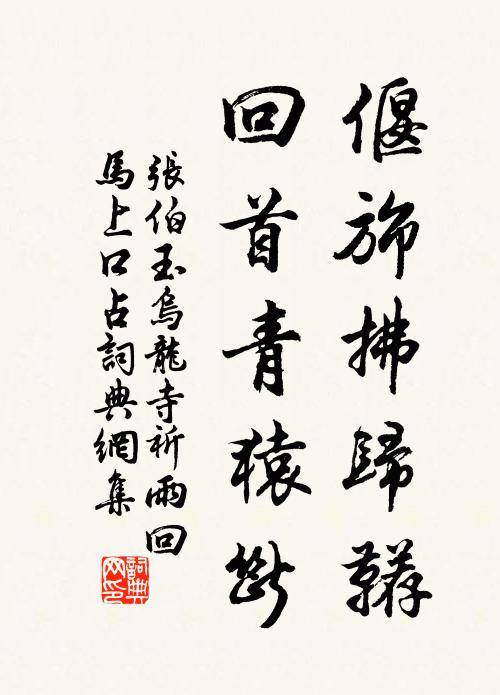 偃旆拂歸韉
回首青猿斷
張伯玉烏龍寺祈雨回
馬上口占詞典網集
詞典
网印